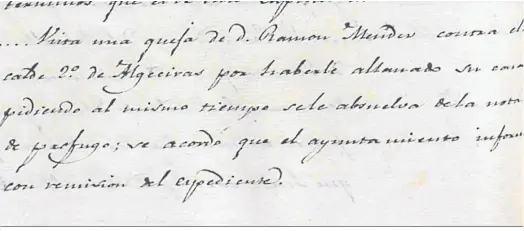 terminos que
.... Vista una queja de d. Ramon Mendes contra el
calde 2.º de Algeciras por haberle allanado su casa
pidiendo al mismo tiempo se le absuelva de la nota
de profugo; se acordó que el ayuntamiento inform
con remision del expediente.